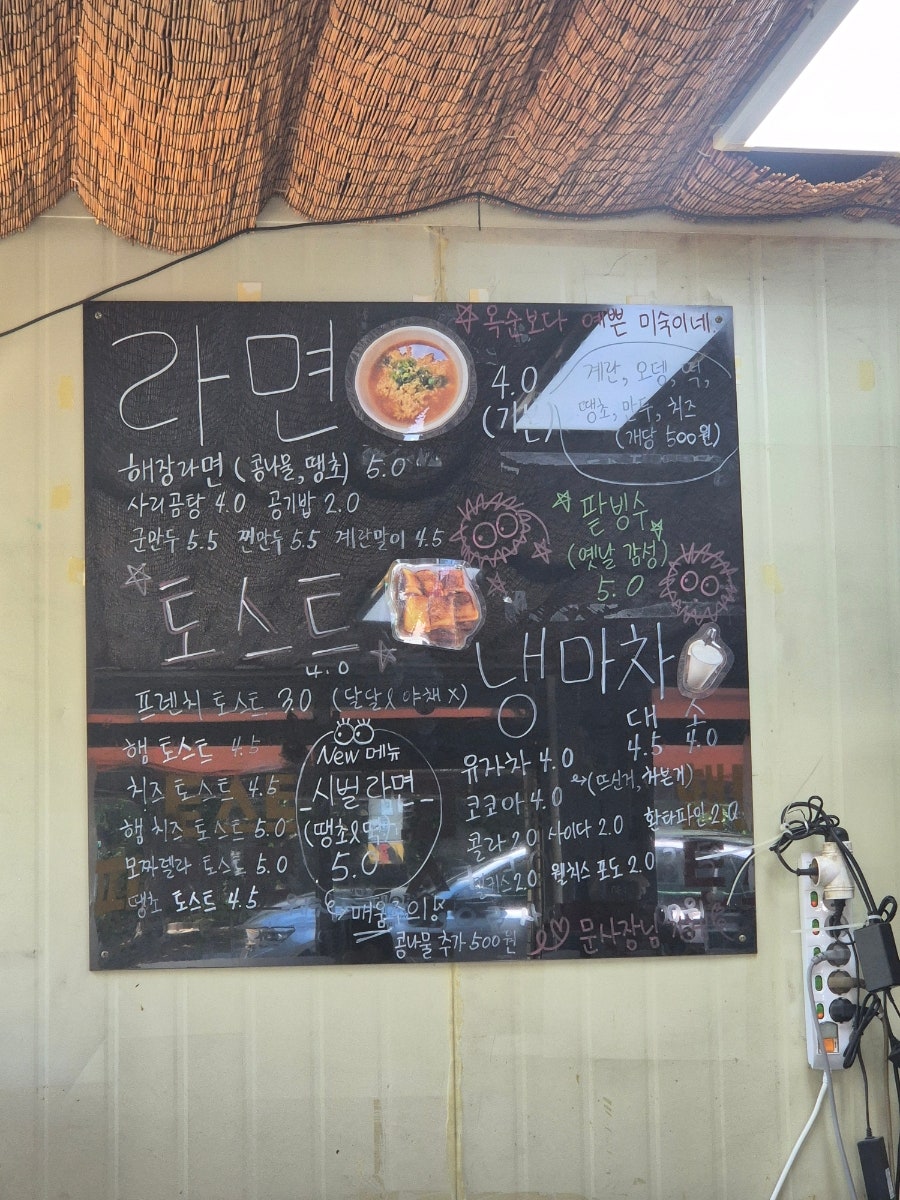 옥순보다 예쁜 미숙이네
라면 4.0
(기본)
계란, 오뎅, 떡,
땡초, 만두, 치즈
(개당 500원)
해장라면 (콩나물, 땡초) 5.0
사리곰탕 4.0 공기밥 2.0
군만두 5.5 찐만두 5.5 계란말이 4.5
팥빙수
(옛날 감성)
5.0
토스트
4.0
프렌치 토스트 3.0 (달달& 야채 X)
햄 토스트 4.5
치즈 토스트 4.5
햄 치즈 토스트 5.0
모짜렐라 토스트 5.0
땡초 토스트 4.5
New 메뉴
시벌 라면
(땡초&떡)
5.0
매움주의!
콩나물 추가 500원
냉마차
대 소
4.5 4.0
유자차 4.0
(뜨신거, 차븐거)
코코아 4.0
콜라 2.0 사이다 2.0 환타파인 2.0
2.0 웰치스 포도 2.0
문사장님